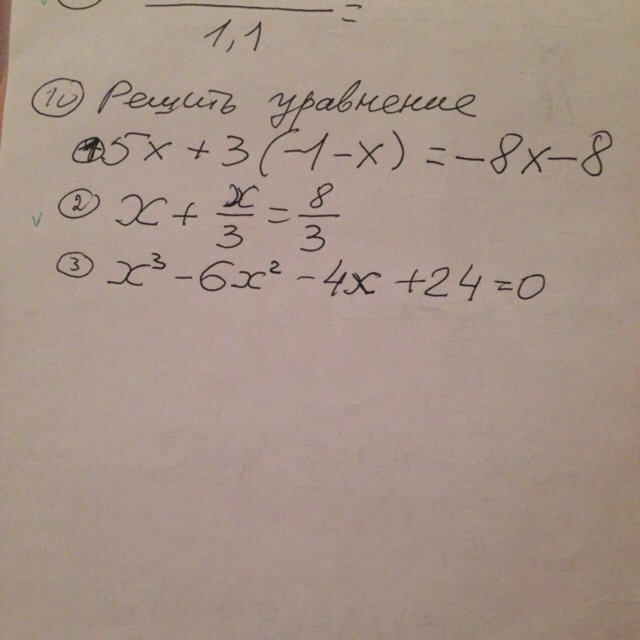 1,1 =
10 Решить уравнение
① 5x + 3(-1-x) = -8x-8
② x + x/3 = 8/3
③ x³ - 6x² - 4x + 24 = 0